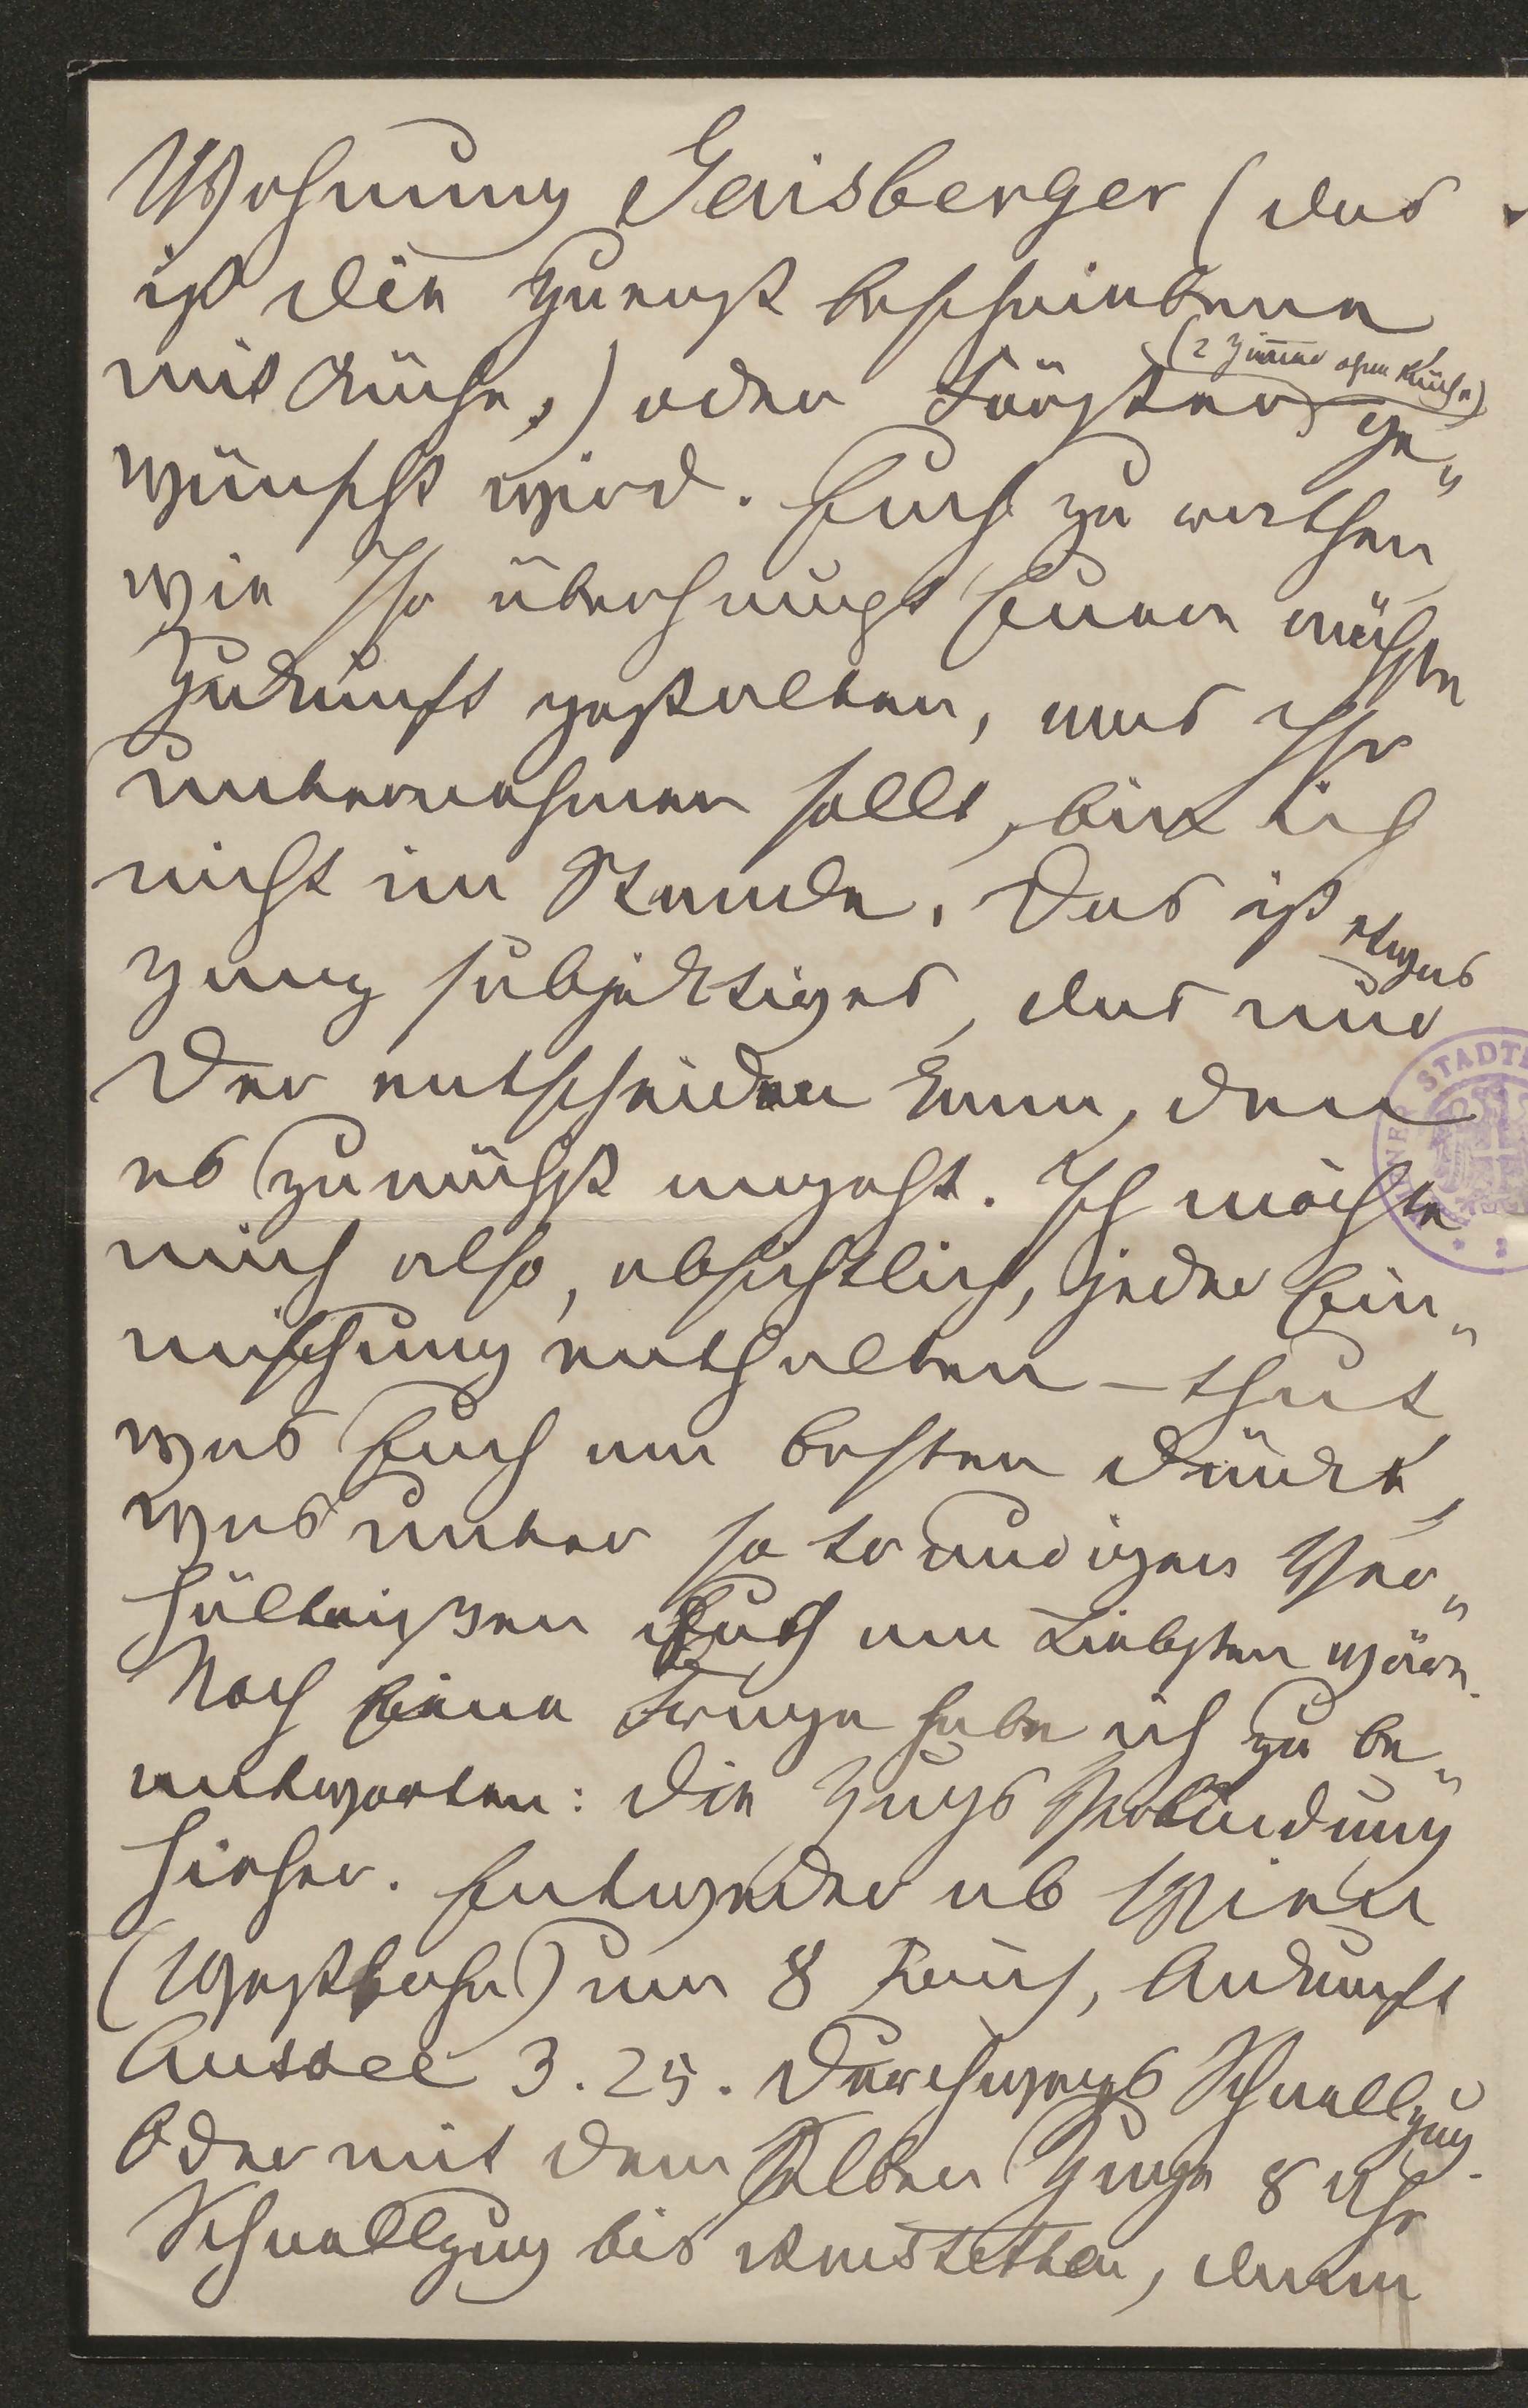 Wohnung Gaisberger (das
ist die zuerst beschriebene
mit Küche,) oder Förster, (2 Zimmer ohne Küche) ge„
wünscht wird. Euch zu rathen
wie Ihr überhaupt Euere nächste
Zukunft gestalten, was Ihr
unternehmen sollt, bin ich
nicht im Stande. Das ist etwas
ganz subjektives, das nur
Der entscheiden kann, den
es zunächst angeht. Ich möchte
mich also, absichtlich, jeder Ein„
mischung enthalten – thut
was Euch am besten dünkt,
was unter so traurigen Ver„
hältnißen Euch am Liebsten wäre.
Noch Eine Frage habe ich zu be„
antworten: die Zugs Verbindung
hieher. Entweder ab Wien
(Westbahn) um 8 Früh, Ankunft
Aussee 3.25. Durchwegs Schnellzug.
Oder mit dem selben Zuge 8 Uhr
Schnellzug bis Amstetten, dann
STADT